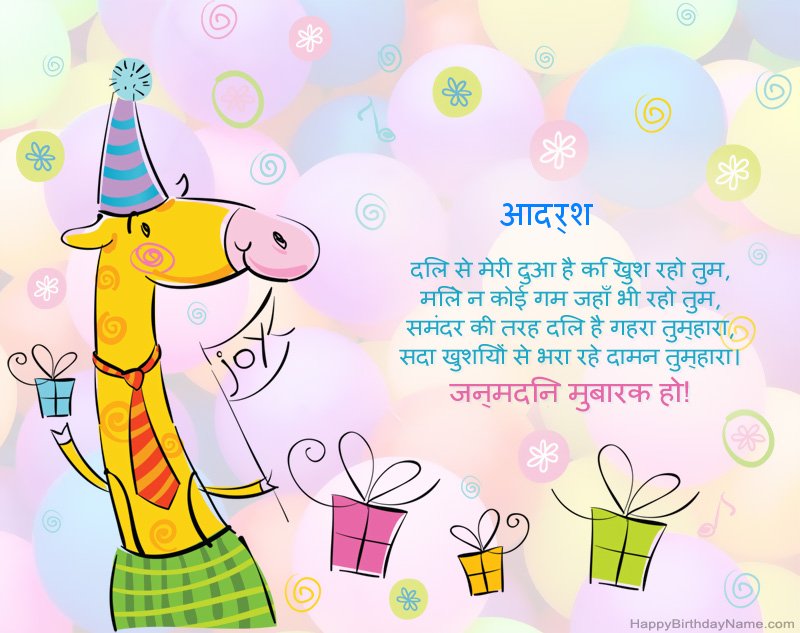 आदर्‌श
दलि से मेरी दुआ है कि खुश रहो तुम,
मलिे न कोई गम जहाँ भी रहो तुम,
समंदर की तरह दलि है गहरा तुम्‌हारा,
सदा खुशयिों से भरा रहे दामन तुम्‌हारा।
जन्‌मदनि मुबारक हो!
joy
HappyBirthdayName.com